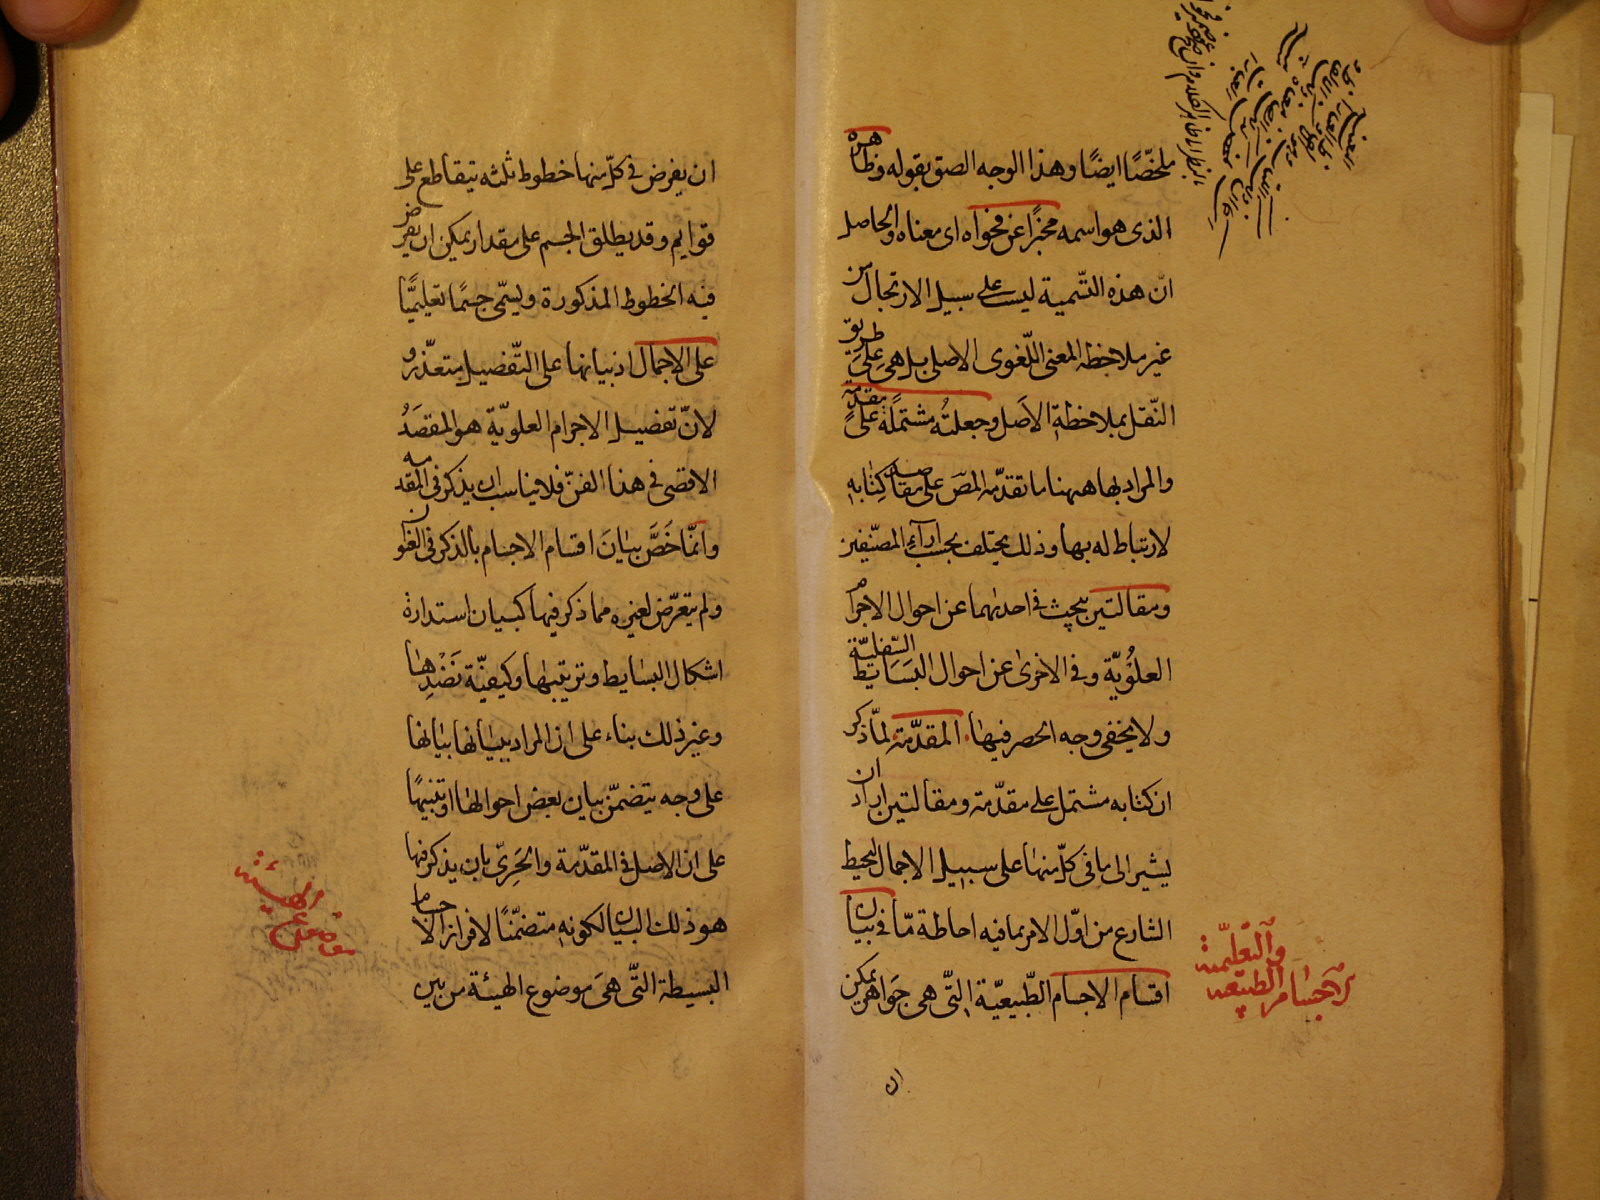 ملخّصًا ايضًا وهذا الوجه الصق بقوله وظاهره
الذى هو اسمه مخبرًا عن فحواه اى معناه والحاصل
انّ هذه التّسمية ليست على سبيل الارتجال من
غير ملاحظة المعنى اللّغوى الاصلى بل هى على طريق
النّقل بملاحظة الاصل وجعلتُه مشتملة على مقدّمة
والمراد بها ههنا ما تقدّمه المص على مقاصد كتابه
لارتباط له بها وذلك يختلف بحسب آراء المصنّفين
ومقالتين يبحث فى احدٰيهما عن احوال الاجرام
العلُوِيّة وفى الاخرىٰ عن احوال البَسَايط السّفليّة
ولا يخفى وجه الحصر فيهَا المقدّمة لمّا ذكر
ان كتابه مشتمل على مقدّمة ومقالتين اراد ان
يشير الى ما فى كلّ منهَا على سبيل الاجمال ليحيط
الشارع من اوّل الامر بما فيه احاطة مّا فى بيان
اقسام الاجسام الطّبيعيّة الّتى هى جَوَاهر يمكن
ان
والتعليمية
الاجسام الطبيعية
ان يفرض فى كلّ منها خطوط ثلثه يتقاطع على
قوايم وقد يطلق الجسم على مقدار يمكن ان يفرض
فيه الخطوط المذكورة ويسمّى جسمًا تعليميًّا
على الاجمال اذ بيانها على التّفصيل متعذّر و
لانّ تفصيل الاجرام العلويّة هو المقصَدُ
الاقصى فى هذا الفنّ فلا يناسب ان يذكر فى المقدمه
وانّما خَصَّ بيَانَ اقسام الاجسام بالذكر فى العنوان
ولم يتعرّض لغيره مما ذكر فيها كبيان استدارة
اشكال البسَايط وترتيبهَا وكيفيّة نَضْدِهَا
وغير ذلك بناء على ان المراد ببيَانها بيَانها
على وجه يتضمّن بيان بعض احوالهَا او تنبيهًا
على ان الاصل فى المقدّمة والحَرِىّ بان يذكر فيها
هو ذلك البيَان لكونهِ متضمّنًا لافراز الاجسام
البسيطة الّتى هىَ موضوع الهيئة من بين